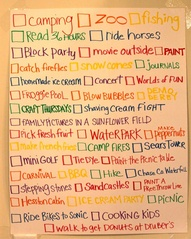 camping zoo fishing
Read 36 hours ride horses
Block party movie outside PAINT
catch fireflies snow cones JOURNALS
homemade ice cream Concert Worlds of FUN
Froggie Pool Blow Bubbles DEAD SEA?
CRAFT THURSDAYS Shaving Cream FIGHT
FAMILY PICTURES IN A SUNFLOWER FIELD
Pick fresh fruit WATERPARK MAKE Peppermints
make french fries CAMP FIRES Sears Tower
mini GOLF Tie Dye Paint the Picnic Table
CARNIVAL BBQ Hike Chaco Co. Waterfall
stepping stones Sandcastles PAINT A
Heaston Cabin ICE CREAM PARTY PICNIC
Ride Bikes to SONIC COOKING KIDS
walk to get Donuts at Druber's